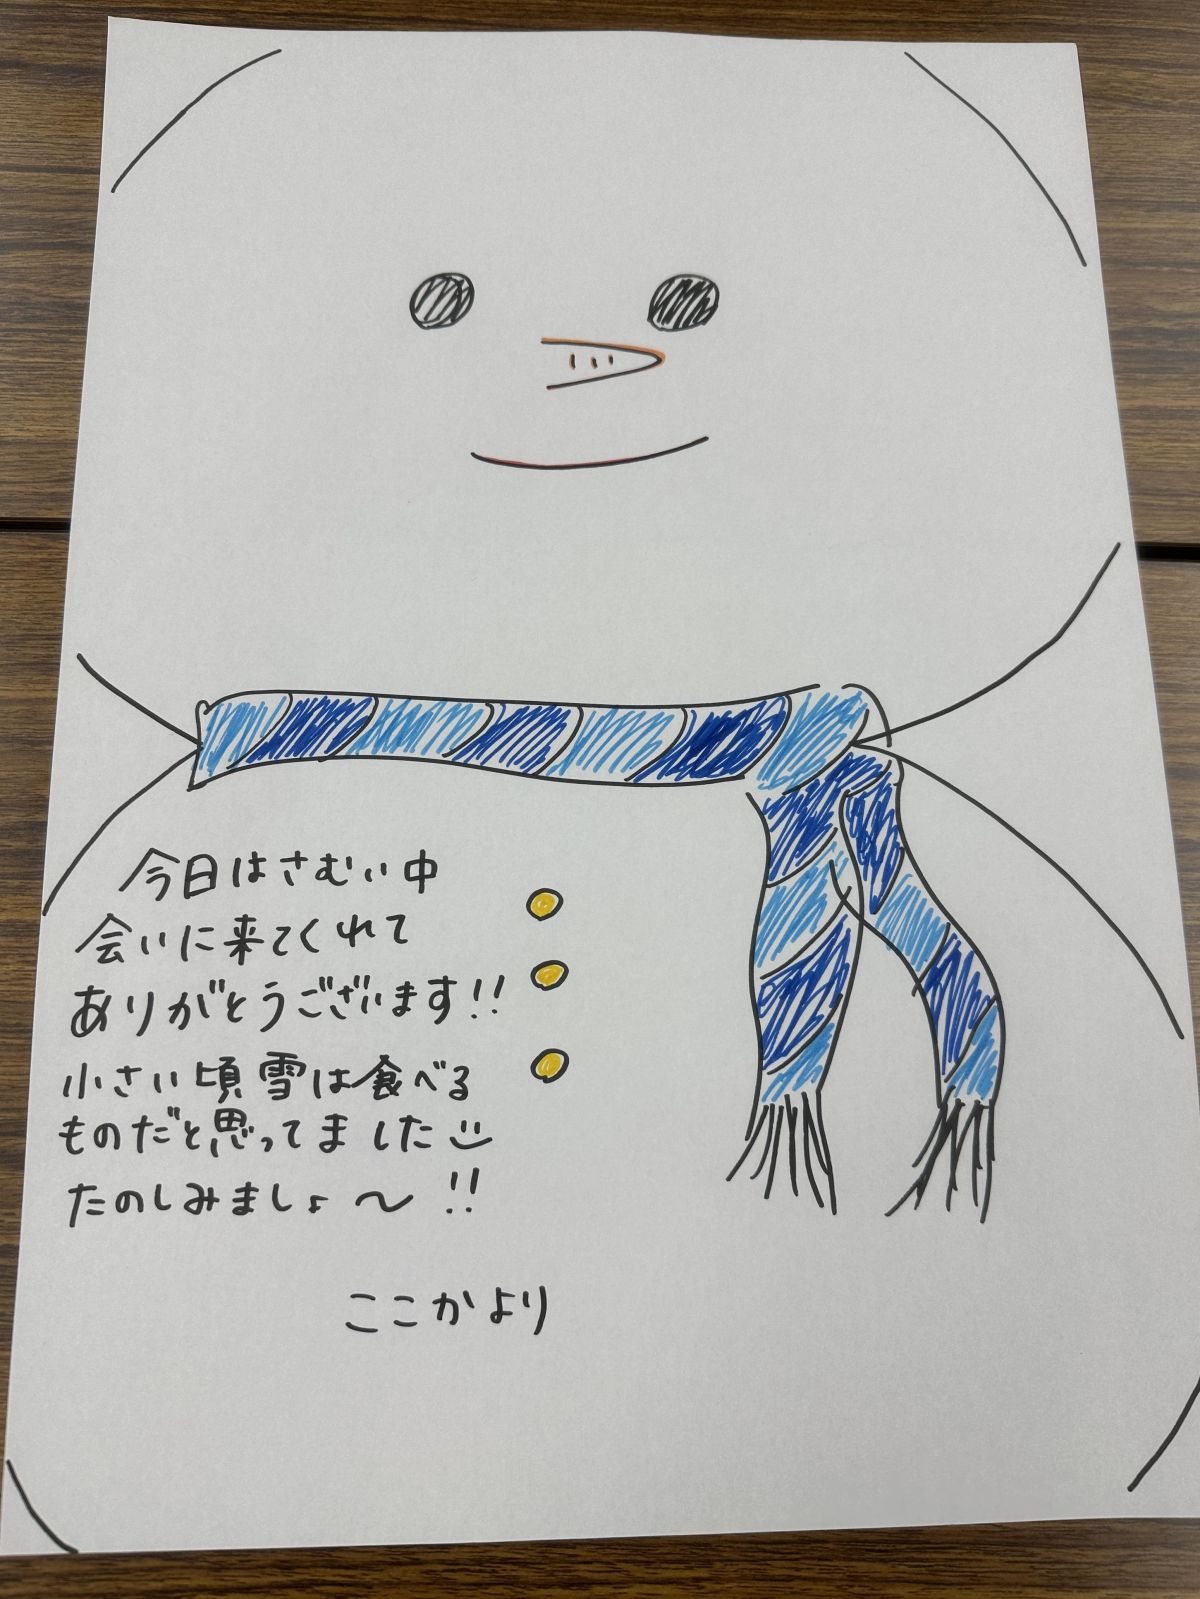 今日はさむい中
会いに来てくれて
ありがとうございます!!
小さい頃雪は食べる
ものだと思ってました
たのしみましょ〜!!
ここかより